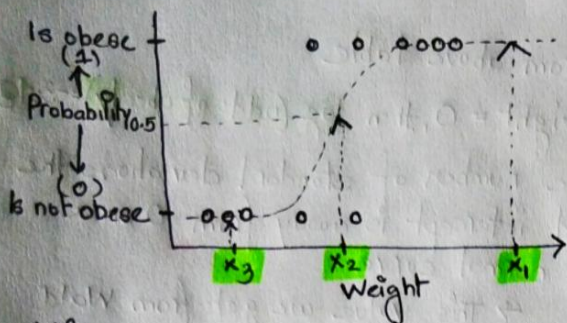 Is obese
(1)
Probability
0.5
(0)
Is not obese
x3 x2 x1
Weight